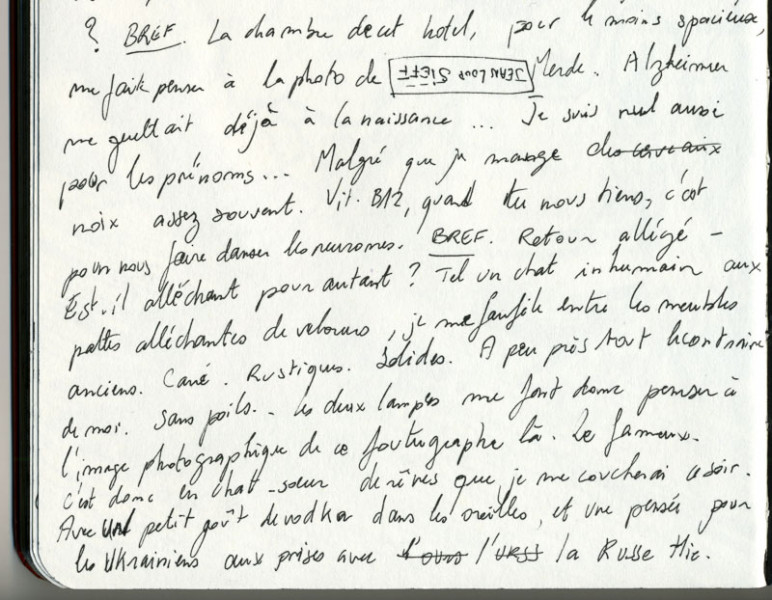 ? BREF. La chambre de cet hotel, pour le moins spacieux,
me fait penser à la photo de JEAN LOUP SIEFF Merde. Alzheimer
me guettait déjà à la naissance... Je suis nul aussi
pour les prénoms... Malgré que je mange des cerveaux
noix assez souvent. Vit. B12, quand tu nous tiens, c'est
pour nous faire danser les neurones. BREF. Retour allégé -
Est-il alléchant pour autant ? Tel un chat inhumain aux
pattes alléchantes de velours, je me faufile entre les meubles
anciens. Carré. Rustiques. Solides. A peu près tout le contraire
de moi. Sans poils.. Les deux lampes me font donc penser à
l'image photographique de ce foutugraphe là. Le fameux.
C'est donc en chat-sœur de rêves que je me coucherai ce soir.
Avec un petit goût de vodka dans les oreilles, et une pensée pour
les Ukrainiens aux prises avec l'ours l'URSS la Russe Hic.